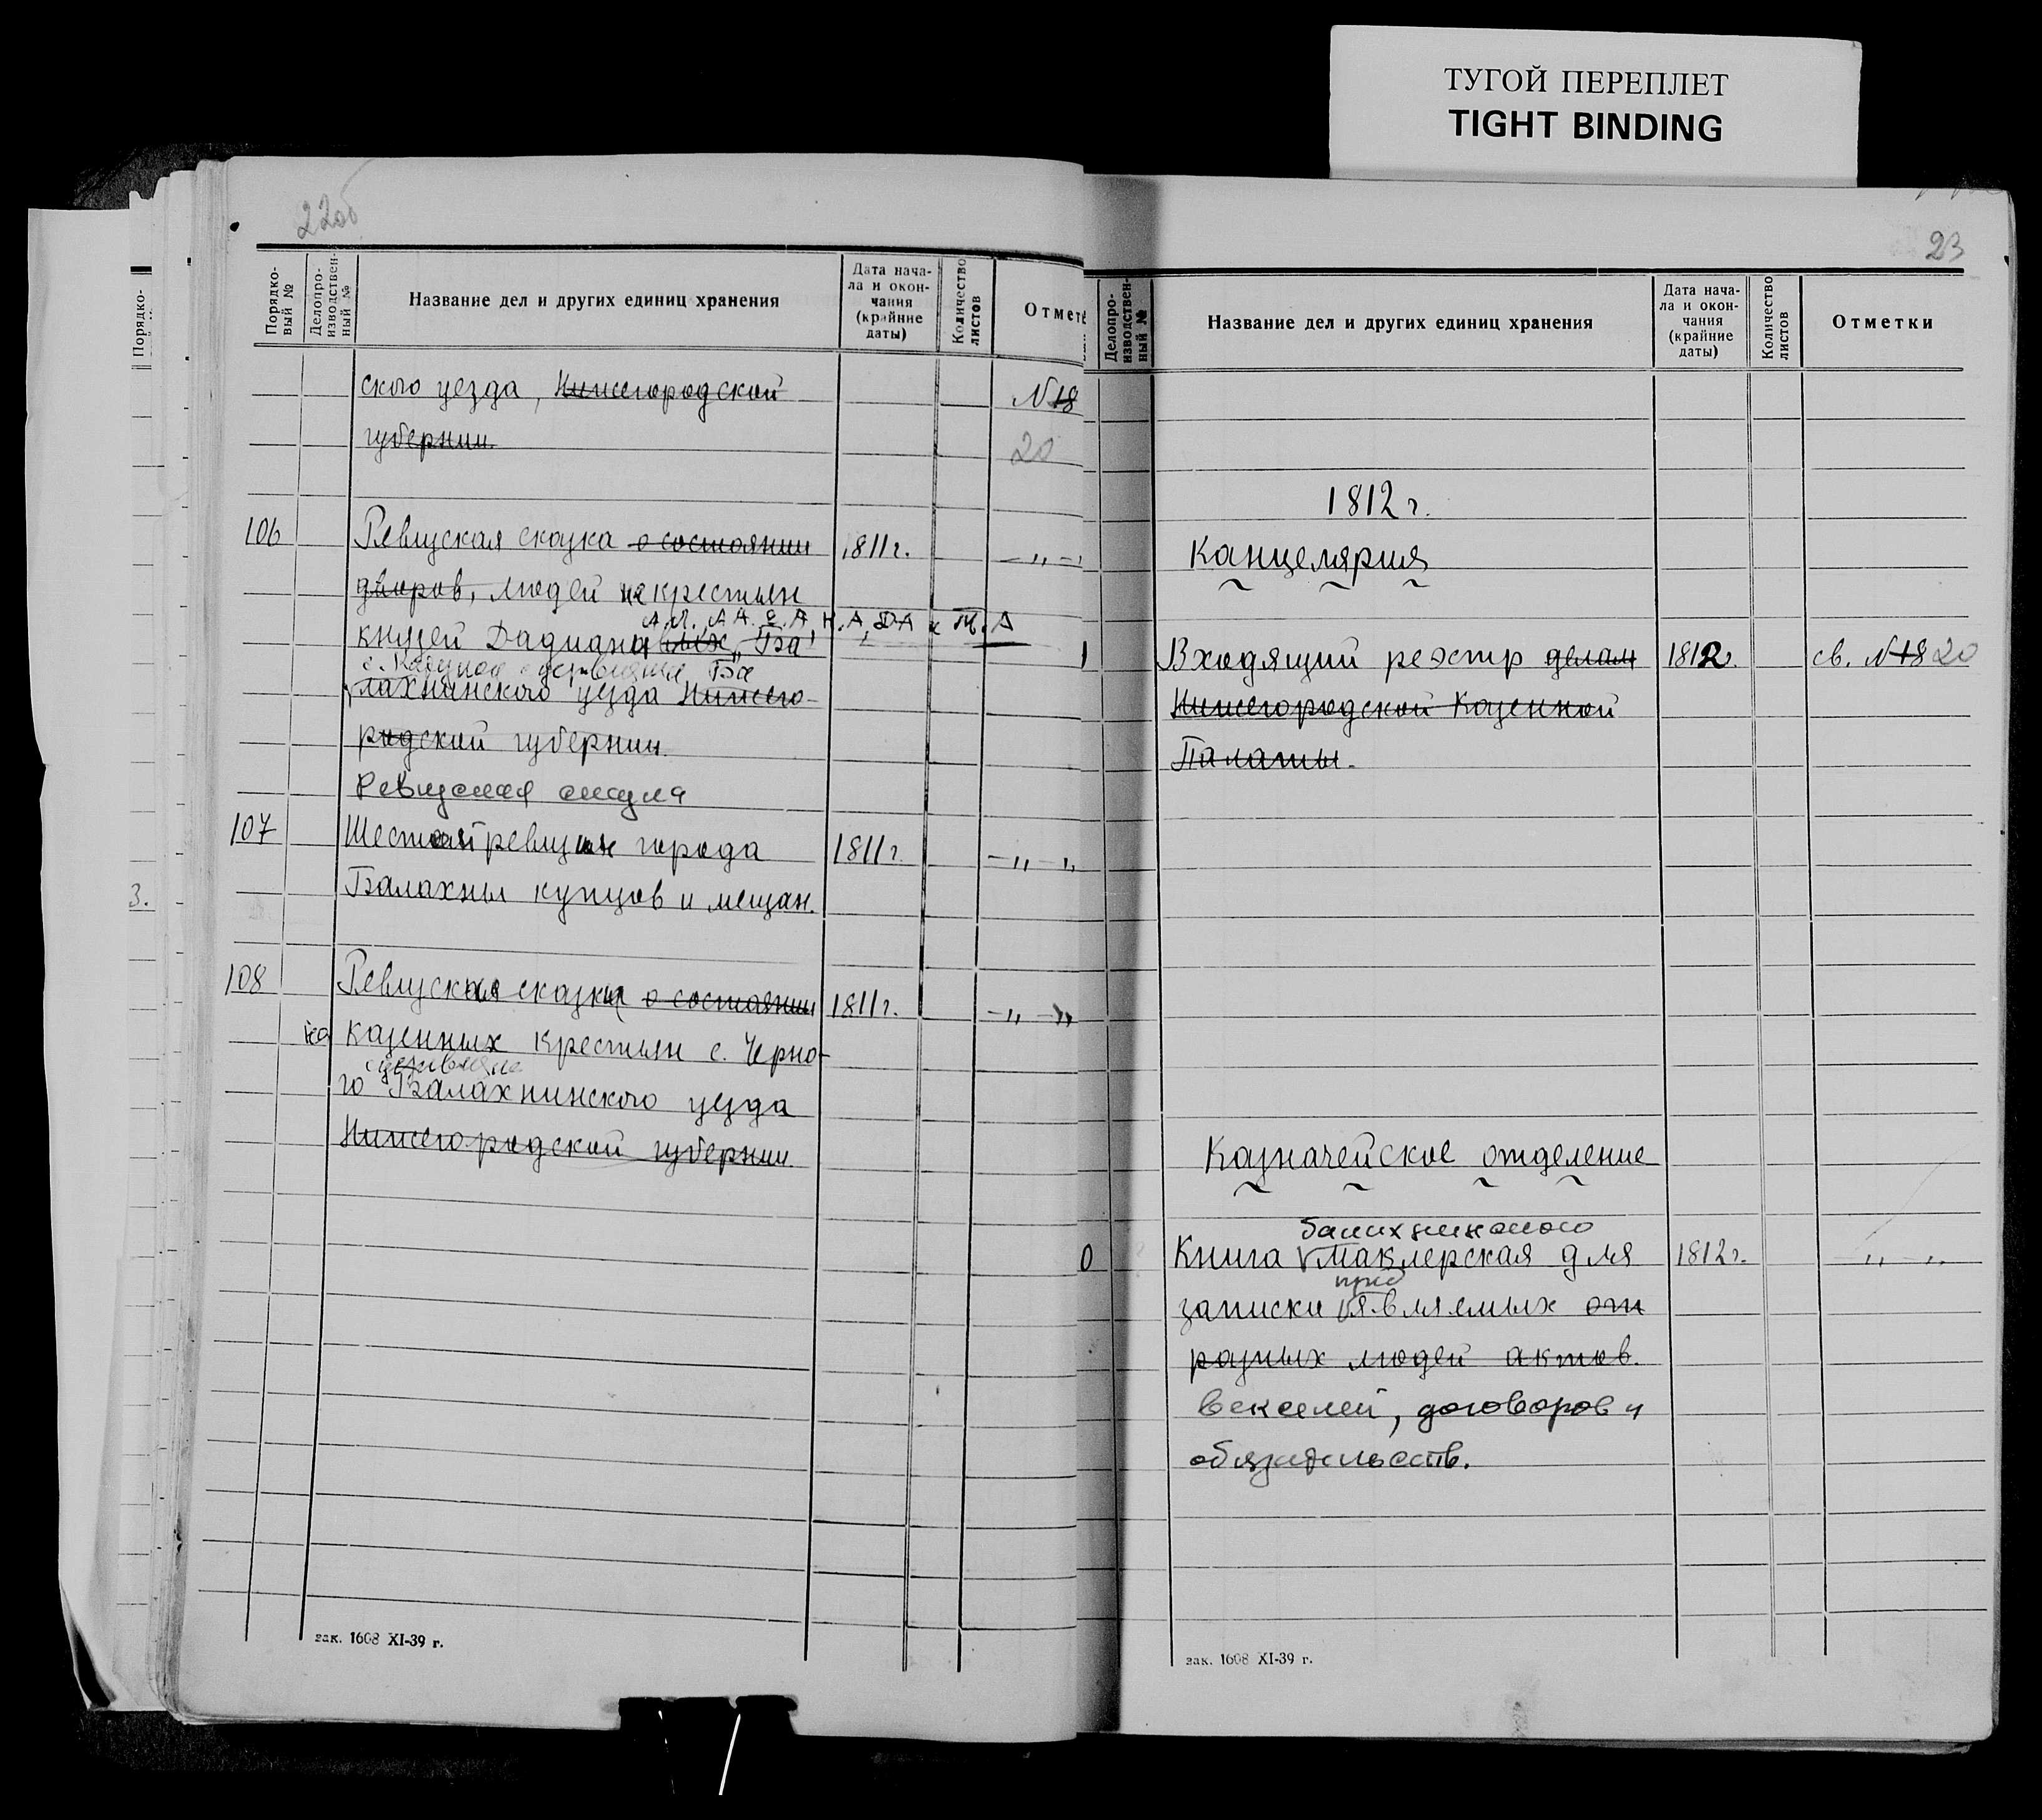 ТУГОЙ ПЕРЕПЛЕТ
TIGHT BINDING
22об
Порядко-
вый №
Делопро-
изводствен-
ный №
Название дел и других единиц хранения
Дата нача-
ла и окон-
чания
(крайние
даты)
Количество
листов
Отмет
ского уезда, Нижегородской
N18
губернии.
20
106
Ревизская сказка о состоянии
1811 г.
— „ —
дворов, людей и крестьян
А.Л. А.А. Е.А Н.А, ДА и М.А
князей Дадиановых, Ба
Ба
лахнинского уезда Нижего-
родской губернии.
Ревизская сказка
107
Шестой ревизии города
1811 г.
— „ — „
Балахны купцов и мещан.
108
Ревизская сказка о состоянии
1811 г.
— „ — „
на казенных крестьян с. Черно-
го Балахнинского уезда
Нижегородской губернии.
зак. 1608 XI-39 г.
Порядко-
3.
23
Делопро-
изводствен-
ный №
Название дел и других единиц хранения
Дата нача-
ла и окон-
чания
(крайние
даты)
Количество
листов
Отметки
1812 г.
Канцелярия
Входящий реэстр делам
1812 г.
св. N18 20
Нижегородской Казенной
Палаты.
Казначейское отделение
балахнинского
0
Книга маклерская для
1812 г.
— „ — „
пред
записки являемых от
разных людей актов.
векселей, договоров и
обязательств.
зак. 1608 XI-39 г.